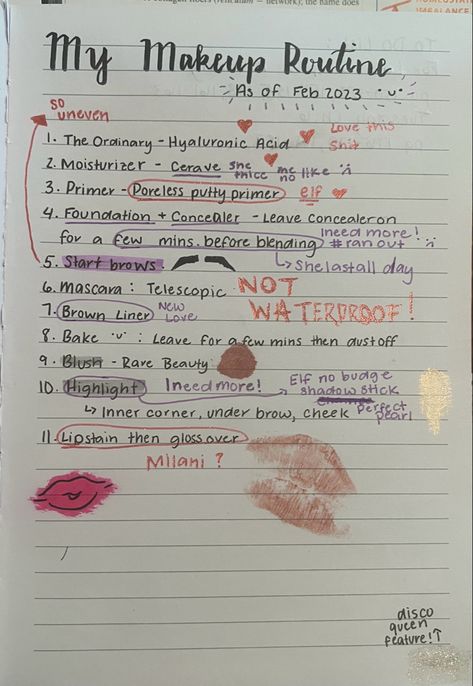 collagen fibers (reticulum = network); the name does
HOMEOSTAT
IMBALANCE
My Makeup Routine
As of Feb 2023 ·u·
so
uneven
1. The Ordinary - Hyaluronic Acid
Love this
shit
2. Moisturizer - Cerave
she
thicc
me
no like
3. Primer - Poreless putty primer
elf
4. Foundation + Concealer - Leave concealer on
for a few mins. before blending
I need more!
# ran out
She last all day
5. Start brows
6. Mascara : Telescopic
NOT
WATERPROOF!
7. Brown Liner
New
Love
8. Bake "u" : Leave for a few mins then dust off
9. Blush - Rare Beauty
10. Highlight
I need more!
Elf no budge
shadow stick
↳ Inner corner, under brow, cheek
perfect
pearl
11. Lipstain then gloss over
Milani ?
disco
queen
feature!↑